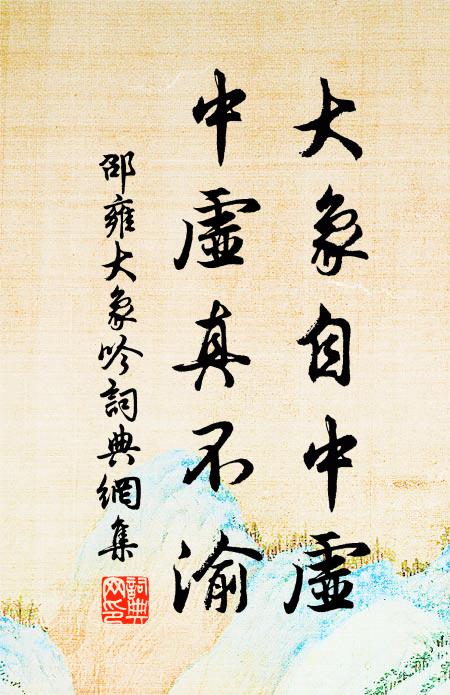 大象自中虛
中虛真不渝
邵雍大象吟詞典網集
詞典網印